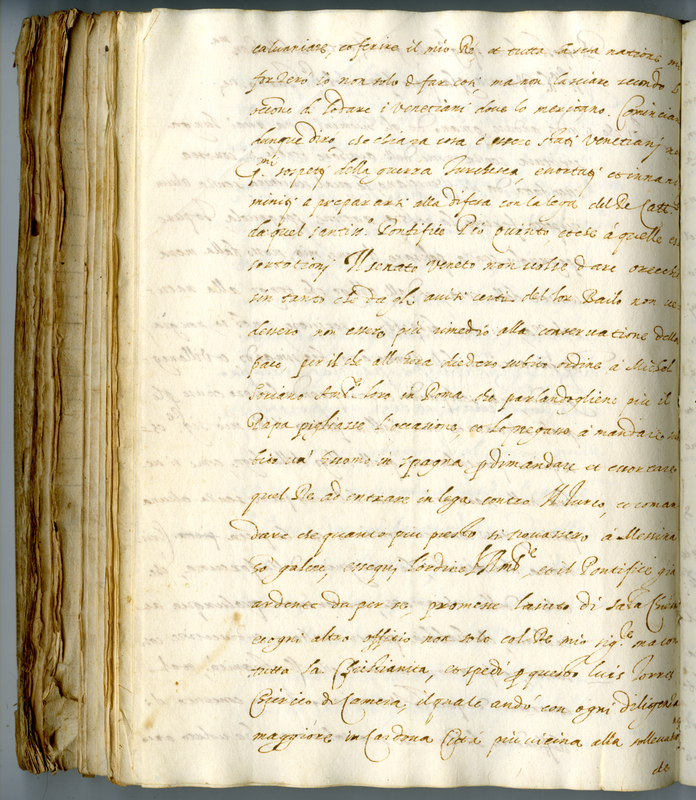 caluniare, et ferire il mio Re et tutta la sua natione
forzerò io non solo di far così, ma non lasciare secondo
di lodare i venetiani dove lo meritano. Comincian
dunque dirò, che chiara cosa è essere stati Venetiani
sospetti della guerra Turchesca, exortati et
a prepararsi alla difesa con la lega del Re Catt.co
da quel santiss.o Pontefice Pio quinto et se à quelle
sortationi Il senato veneto non volse dare orecch
sin tanto che da gli avisi certi del lor Bailo non
dessero non essere più rimedio alla conservatione della
pace, per il che all'hora diedero subito ordine à Michel
Soriano Amb.re loro in Roma che parlandogliene più il
Papa pigliasse l'occasione, et lo pregasse à mandare
bito un' huomo in spagna, p dimandare et exortare
quel Re ad entrare in lega contro Il Turco, et coman
dare che quanto più presto si trovassero à Messina
galere, esseguì l'ordine l'Amb.re, et il Pontefice già
ardente da per se, promesse l'aiuto di
et ogni altro officio non solo col Re mio sig.re ma con
tutta la Christianità, et spedì p questo luis Torres
Chierico di Camera, il quale andò con ogni diligenza
maggiore in Cardona Città più vicina alla sollevat
de